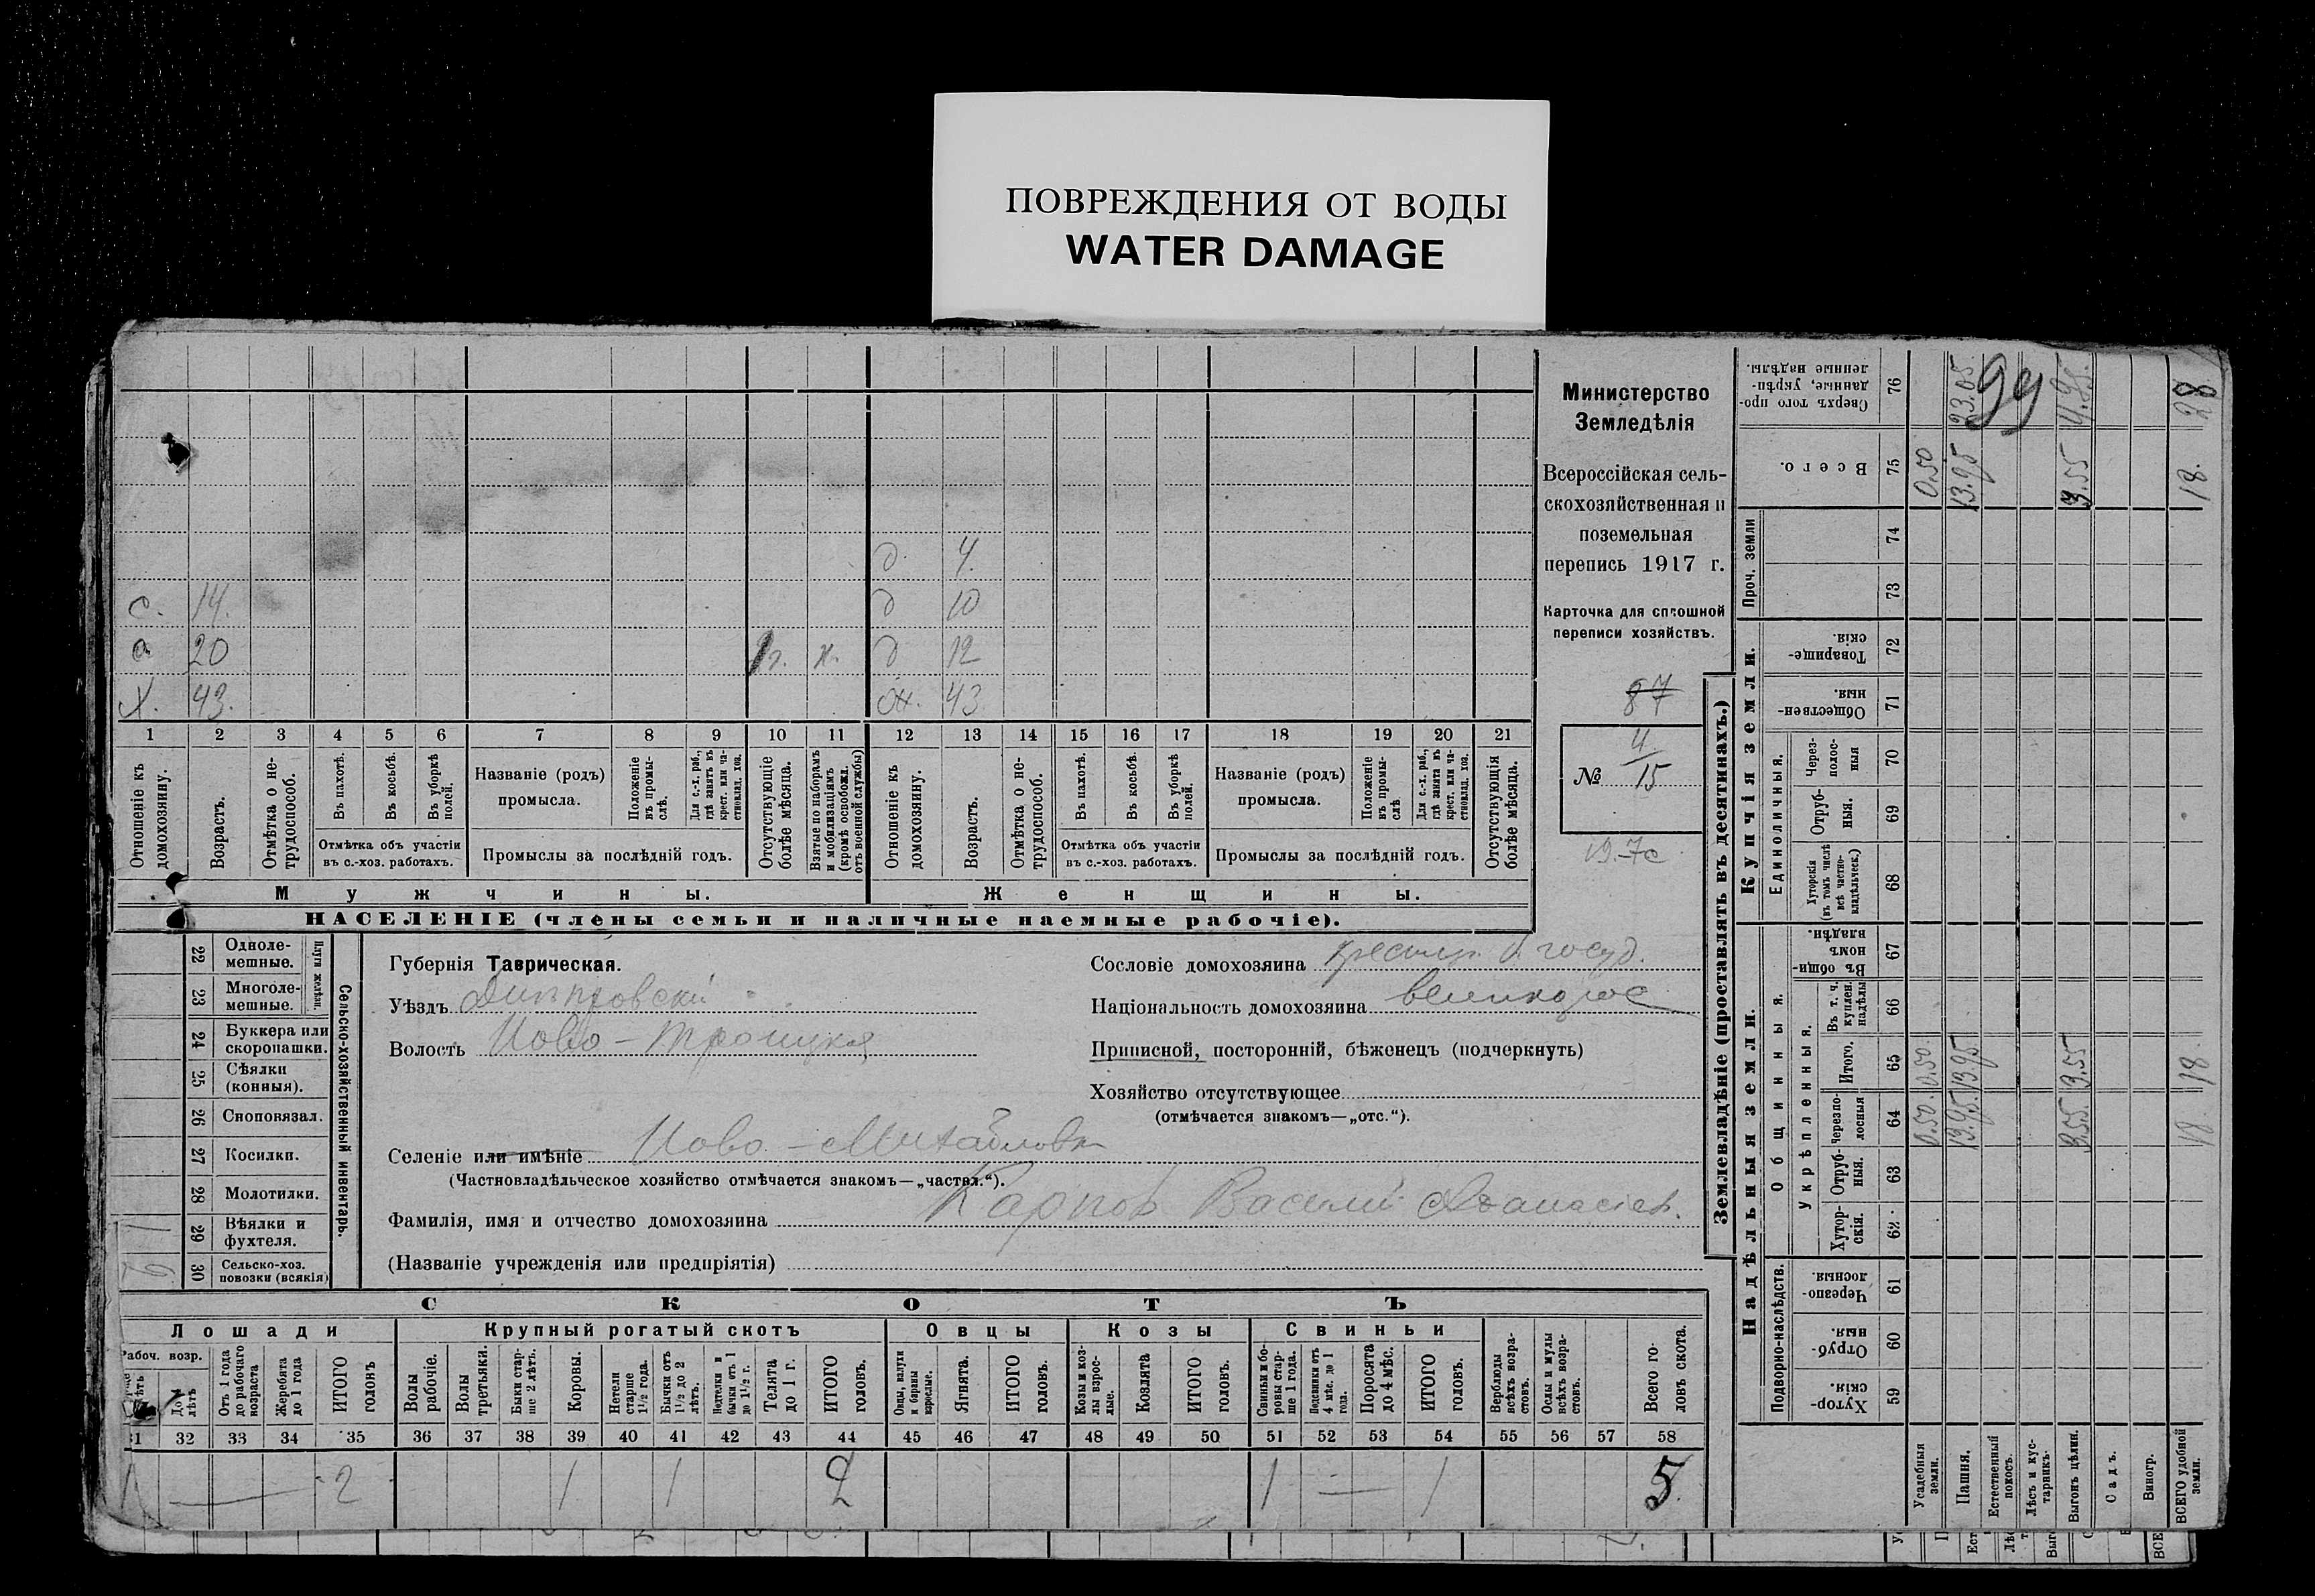 ПОВРЕЖДЕНИЯ ОТ ВОДЫ
WATER DAMAGE
д. 4.
с. 14. д 10
20 1г. н. д 12
х. 43. ж. 43
1 2 3 4 5 6 7 8 9 10 11 12 13 14 15 16 17 18 19 20 21
Отношеніе къ домохозяину.
Возрастъ.
Отмѣтка о не-трудоспособ.
Въ пахотѣ.
Въ косьбѣ.
Въ уборкѣ полей.
Отмѣтка объ участіи
въ с.-хоз. работахъ.
Названіе (родъ)
промысла.
Положеніе въ промы-слѣ.
Для с.-х. раб., гдѣ занятъ въ крест. или ча-стновлад. хоз.
Промыслы за послѣдній годъ.
Отсутствующіе болѣе мѣсяца.
Взятые по наборамъ и мобилизаціямъ (кромѣ освобожд. отъ военной службы)
Отношеніе къ домохозяину.
Возрастъ.
Отмѣтка о не-трудоспособ.
Въ пахотѣ.
Въ косьбѣ.
Въ уборкѣ полей.
Отмѣтка объ участіи
въ с.-хоз. работахъ.
Названіе (родъ)
промысла.
Положеніе въ промы-слѣ.
Для с.-х. раб., гдѣ занята въ крест. или ча-стновлад. хоз.
Промыслы за послѣдній годъ.
Отсутствующія болѣе мѣсяца.
Мужчины. Женщины.
НАСЕЛЕНІЕ (члены семьи и наличные наемные рабочіе).
Министерство
Земледѣлія
Всероссійская сель-
скохозяйственная и
поземельная
перепись 1917 г.
Карточка для сплошной
переписи хозяйствъ.
87
№ 4/15
22 Одноле-мешные.
23 Многоле-мешные.
Плуги желѣзн.
24 Буккера или скоропашки.
25 Сѣялки (конныя).
26 Сноповязал.
27 Косилки.
28 Молотилки.
29 Вѣялки и фухтеля.
30 Сельско-хоз. повозки (всякія)
Сельско-хозяйственный инвентарь.
Губернія Таврическая.
Уѣздъ Днѣпровскій
Волость Ново-Троицкая
Сословіе домохозяина крестьян. б. госуд.
Національность домохозяина великорос
Приписной, посторонній, бѣженецъ (подчеркнуть)
Хозяйство отсутствующее
(отмѣчается знакомъ—„отс.“).
Селеніе или имѣніе Ново-Михайловка
(Частновладѣльческое хозяйство отмѣчается знакомъ—„частвл.“).
Фамилія, имя и отчество домохозяина Карповъ Василій Афанасіев.
(Названіе учрежденія или предпріятія)
СКОТЪ
Лошади Крупный рогатый скотъ Овцы Козы Свиньи
Рабоч. возр.
До 4 лѣтъ
Отъ 1 года до рабочаго возраста
Жеребята до 1 года
ИТОГО головъ
Волы рабочіе.
Волы третьяки.
Быки стар-ше 2 лѣтъ.
Коровы.
Нетели старше 1½ года.
Бычки отъ 1½ до 2 лѣтъ.
Подтелки и бычки отъ 1 до 1½ г.
Телята до 1 г.
ИТОГО головъ.
Овцы, валухи и бараны взрослые.
Ягнята.
ИТОГО головъ.
Козы и коз-лы взрос-лые.
Козлята
ИТОГО головъ.
Свиньи и бо-ровы стар-ше 1 года.
Подсвинки отъ 4 мѣс. до 1 года.
Поросята до 4 мѣс.
ИТОГО головъ.
Верблюды всѣхъ возра-стовъ.
Ослы и мулы всѣхъ возра-стовъ.
Всего го-ловъ скота.
31 32 33 34 35 36 37 38 39 40 41 42 43 44 45 46 47 48 49 50 51 52 53 54 55 56 57 58
2 1 1 2 1 — 1 5
Землевладѣніе (проставлять въ десятинахъ.)
Надѣльныя земли. Купчія земли. Проч. земли
Подворно-наслѣдств.
Общинныя.
Укрѣпленныя.
Единоличныя.
Хутор-скія. 59
Отруб-ныя. 60
Черезпо-лосныя. 61
Хутор-скія. 62
Отруб-ныя. 63
Черезпо-лосныя 64
Итого. 65
Въ т. ч. куплен. надѣлы 66
Въ общин-номъ владѣн. 67
Хуторскія (въ томъ числѣ всѣ частно-владѣльческ.) 68
Отруб-ныя. 69
Через-полос-ныя 70
Обществен-ныя. 71
Товарище-скія. 72
73
74
Всего. 75
Сверхъ того про-данные, укрѣп-ленные надѣлы. 76
Усадебныя земли. 0.50. 0.50. 0.50
Пашня. 13.95 13.95 13.95 23.05
Естественный покосъ. 99
Лѣсъ и кус-тарникъ.
Выгонъ цѣлин. 3.55 3.55 3.55
Садъ.
Виногр.
ВСЕГО удобной земли. 18. 18. 18. 28